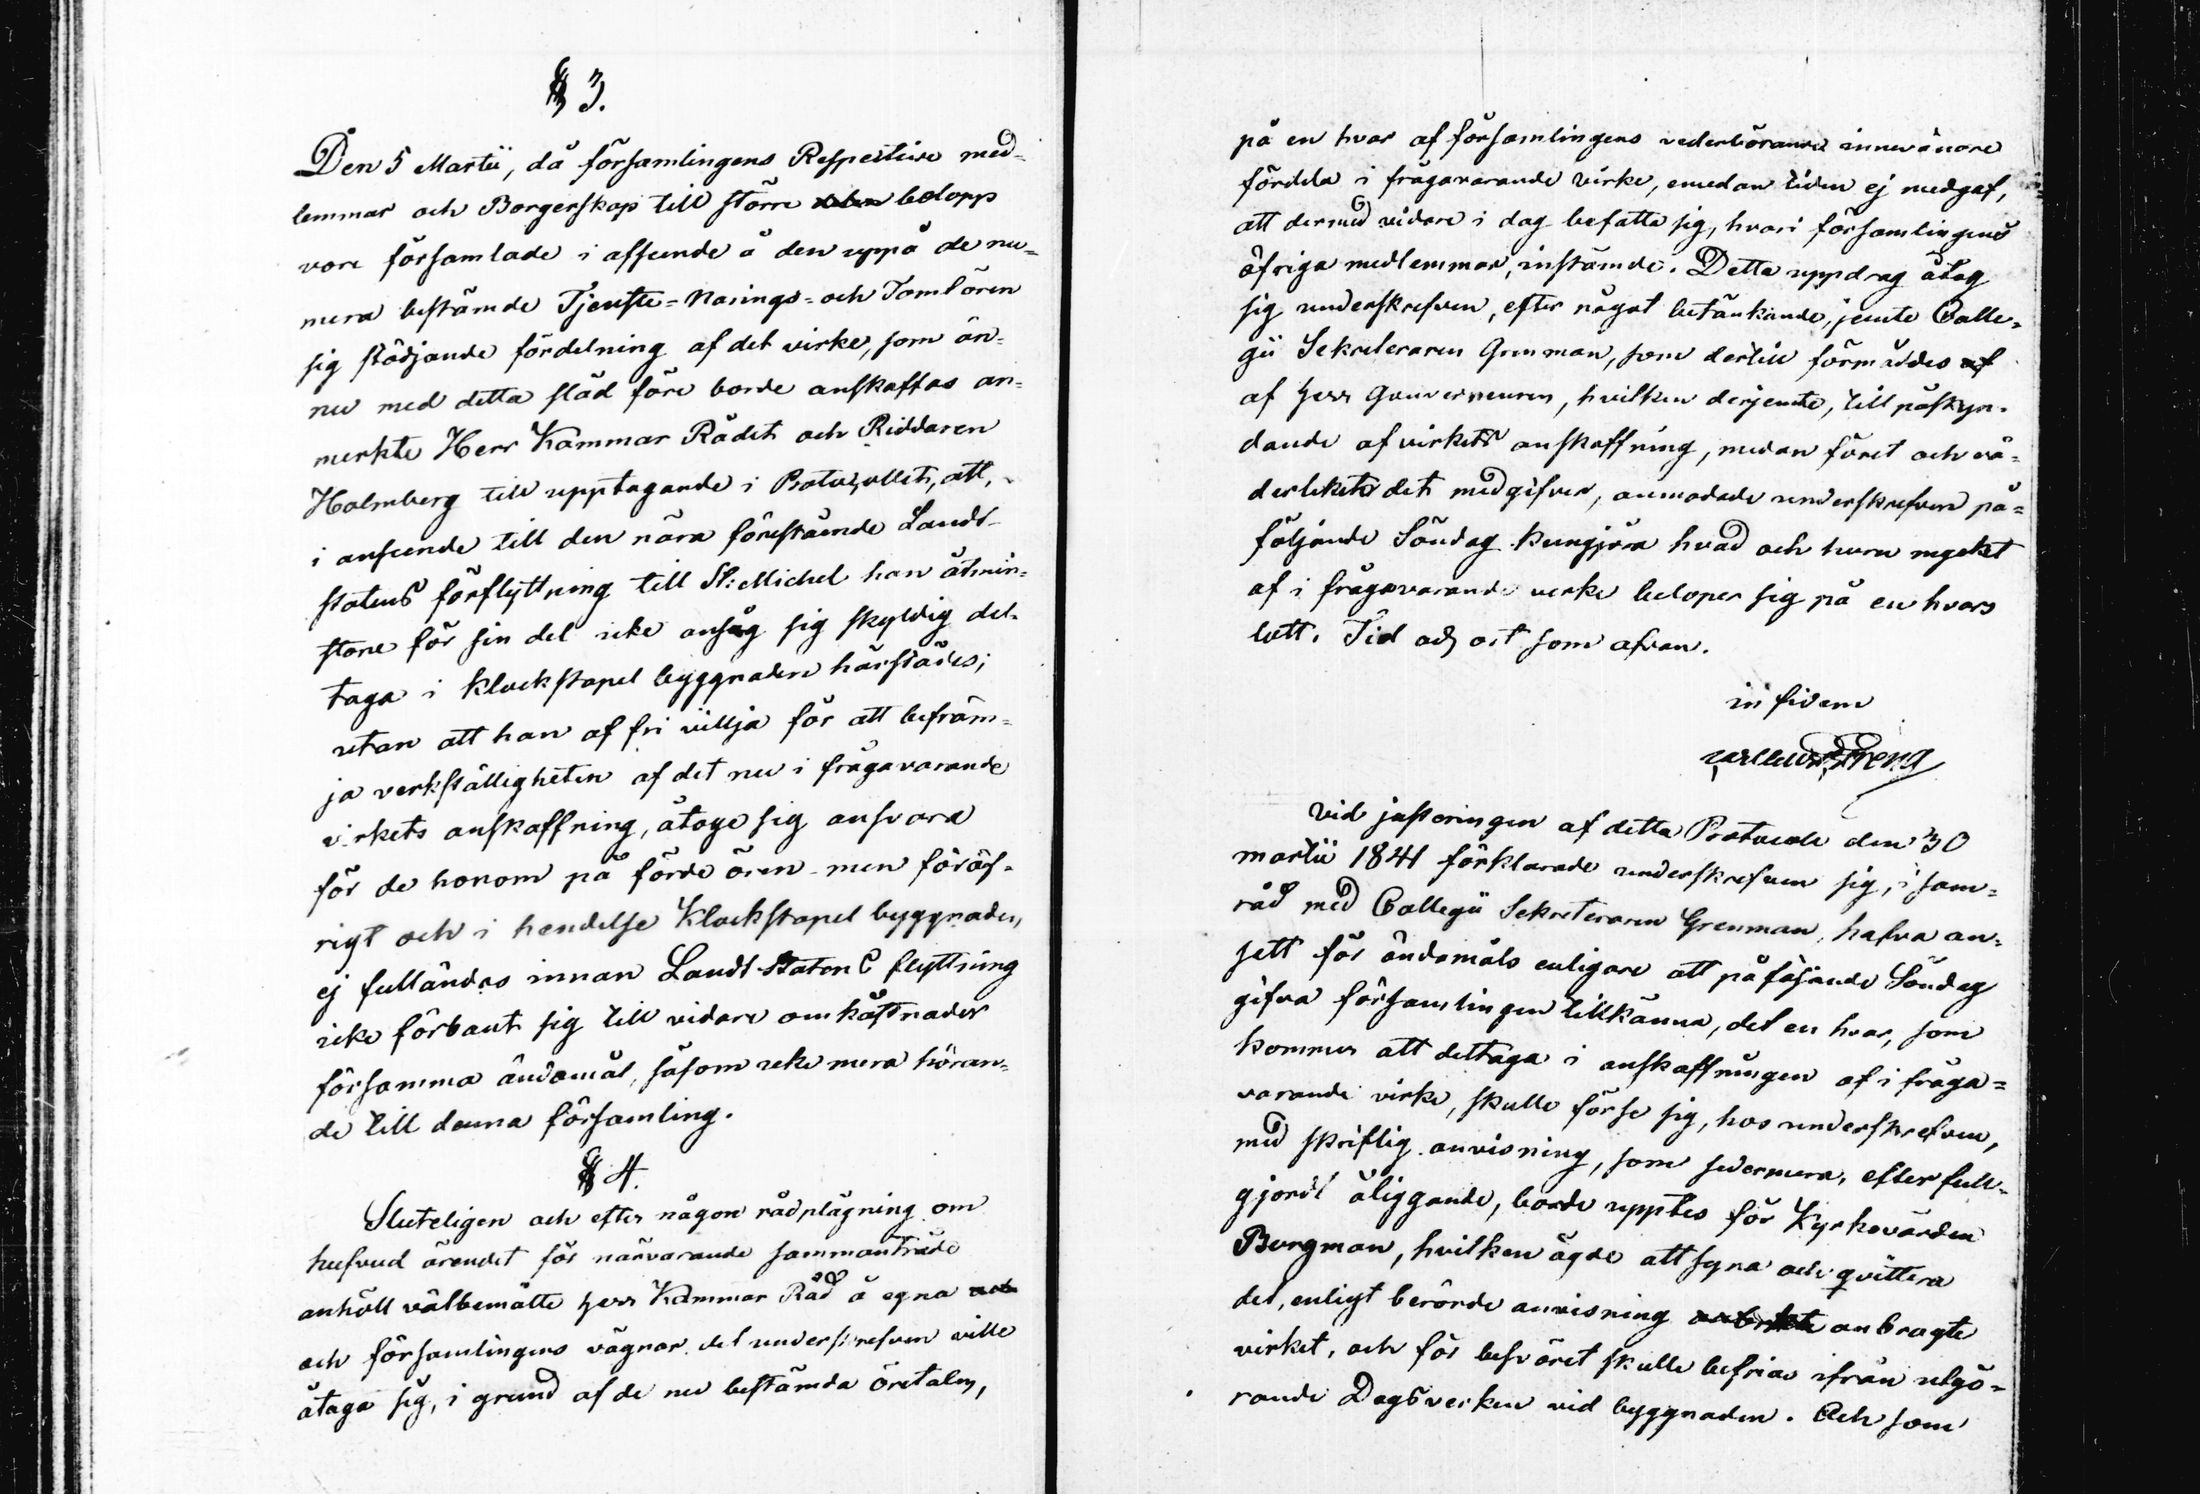 § 3.
Den 5 Martii, då församlingens Respective med=
lemmar och Borgerskap till större belopp
voro församlade i afseende å den uppå de nu=
mera bestämde Tjenste= Närings= och Tomtören
sig stödjande fördelning af det virke, som än=
nu med detta släd före borde anskaffas an=
merkte Herr Kammar Rådet och Riddaren
Holmberg till upptagande i Protocollet, att,
i anseende till den nära förestående Landt-
statens förflyttning till St: Michel han åtmin=
stone för sin del icke ansåg sig skyldig del-
taga i klockstapel byggnaden härstädes;
utan att han af fri villja för att befräm=
ja verkställigheten af det nu i frågavarande
virkets anskaffning, åtoge sig ansvara
för de honom på förde ören - men föröf-
rigt och i hendelse Klockstapel byggnaden,
ej fulländas innan Landt Staten S flyttning
icke förbant sig till vidare omkåstnader
församma ändamål, såsom icke mera höran=
de till denna församling.
§ 4.
Sluteligen och efter någon rådplägning om
hufvud ärendet för närvarande sammanträde
anhöll välbemälte Herr Kammar Råd å egna
och församlingens vägnar det underskrefven ville
åtaga sig, i grund af de nu bestämda öretalen,
på en hvar af församlingens vederbörande innevånare
fördela i frågavarande virke, emedan tiden ej medgaf,
att dermed vidare i dag befatta sig, hvari församlingens
öfriga medlemmar, instämde. Detta uppdrag åtog
sig underskrefven, efter något betänkande, jemte Colle=
gii Sekreteraren Grenman, som dertill förmåddes af
af Herr Gouverneuren, hvilken derjemte, till påskyn-
dande af virkets anskaffning, medan föret och vä=
derleket det medgifver, anmodade underskrefven på=
följande Söndag kungjöra hvad och huru myckt
af i frågavarande verke beloper sig på en hvars
lott. Tid och ort som ofvan.
in fidem
Vid justeringen af detta Protocole den 30
martii 1841 förklarade underskrefven sig, i sam=
råd med Collegii Sekreteraren Grenman, hafva an=
sett för ändamåls enligare att påföjande Söndag
gifva församlingen tillkänna, det en hvar, som
kommer att deltaga i anskaffningen af i fråga=
varande virke, skulle förse sig, hos underskrefven,
med skriftlig anvisning, som sedermera, efter full=
gjordt åliggande, borde upptes för Kyrkovärden
Borgman, hvilken ägde att syna och qvittera
det, enligt berörde anvisning anbragte
virket, och för besväret skulle befrias ifrån utgö=
rande Dagsverken vid byggnaden. Och som